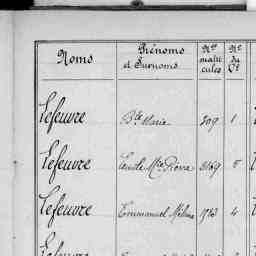 Noms
Prénoms
et Surnoms
Nos
matri
cules
No
du
Ct
Lefeuvre Bte Marie 1
Lefeuvre Émile Mie Pierre 5
Lefeuvre Emmanuel 1783 4
Lefeuvre